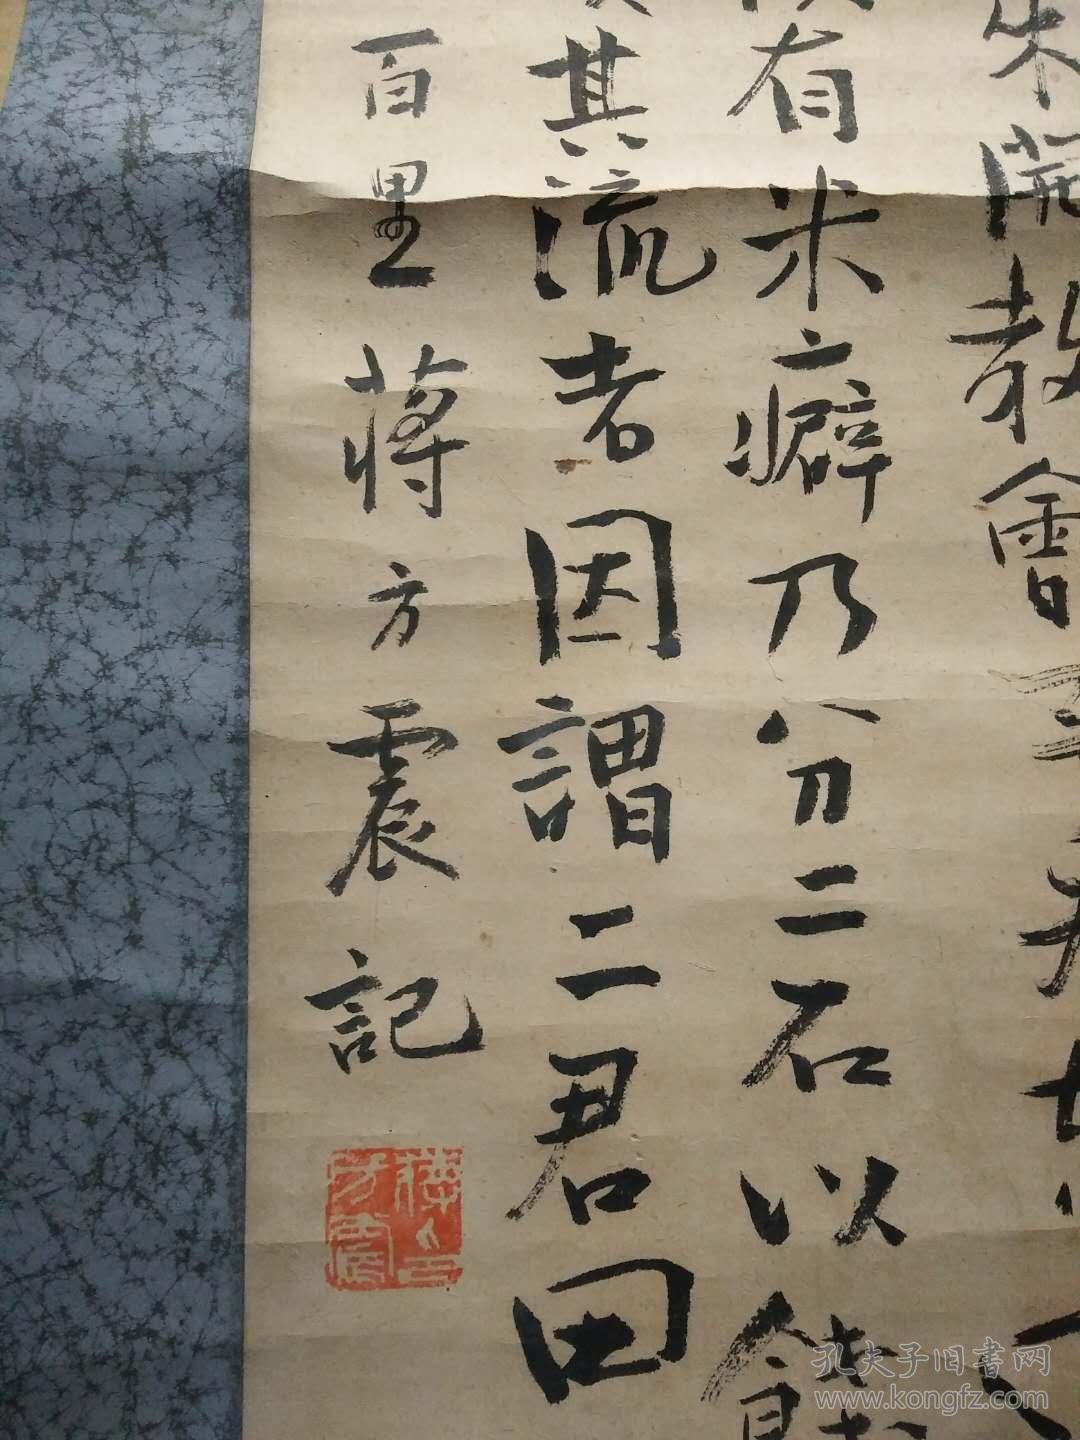 朱開教會
有米癖乃分二石以餉
其流者因謂二君田
百里蔣方震記
孔夫子旧书网
www.kongfz.com